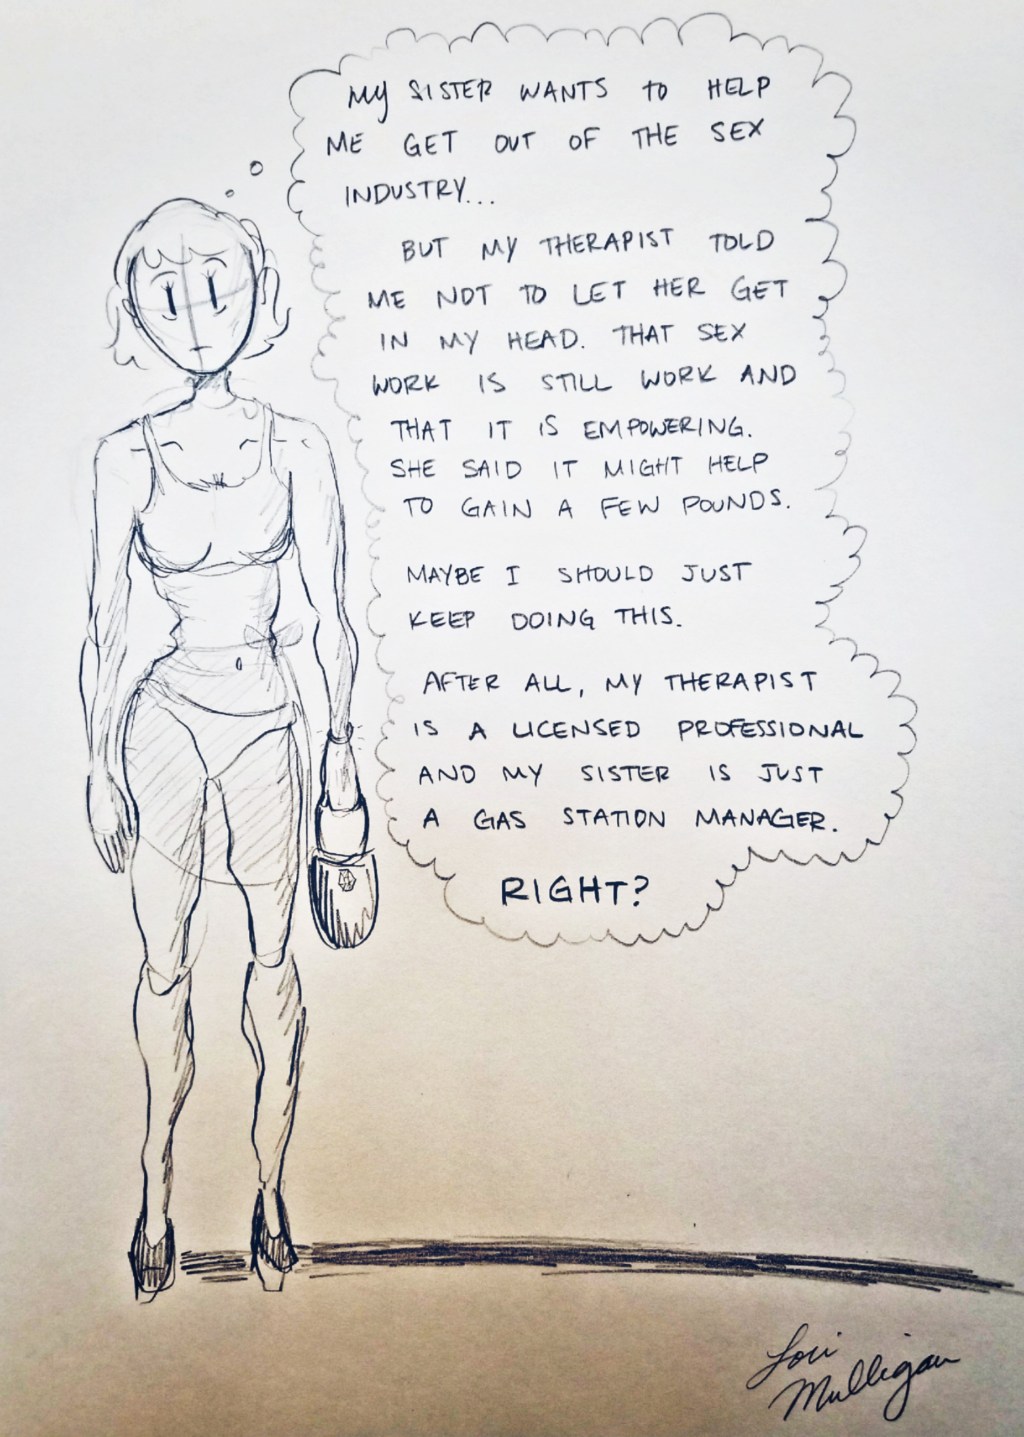 MY SISTER WANTS TO HELP
ME GET OUT OF THE SEX
INDUSTRY...
BUT MY THERAPIST TOLD
ME NOT TO LET HER GET
IN MY HEAD. THAT SEX
WORK IS STILL WORK AND
THAT IT IS EMPOWERING.
SHE SAID IT MIGHT HELP
TO GAIN A FEW POUNDS.
MAYBE I SHOULD JUST
KEEP DOING THIS.
AFTER ALL, MY THERAPIST
IS A LICENSED PROFESSIONAL
AND MY SISTER IS JUST
A GAS STATION MANAGER.
RIGHT?
Lori
Mulligan